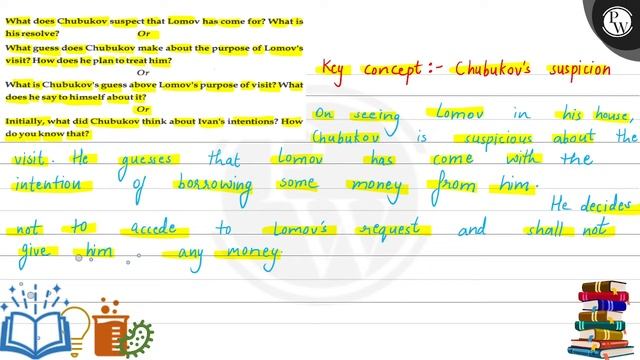 What does Chubukov suspect that Lomov has come for? What is
his resolve?
Or
What guess does Chubukov make about the purpose of Lomov's
visit? How does he plan to treat him?
Or
What is Chubukov's guess above Lomov's purpose of visit? What
does he say to himself about it?
Or
Initially, what did Chubukov think about Ivan's intentions? How
do you know that?
PW
Key concept:- Chubukov's suspicion
On seeing Lomov in his house,
Chubukov is suspicious about the
visit. He guesses that Lomov has come with the
intention of borrowing some money from him.
He decides
not to accede to Lomov's request and shall not
give him any money.